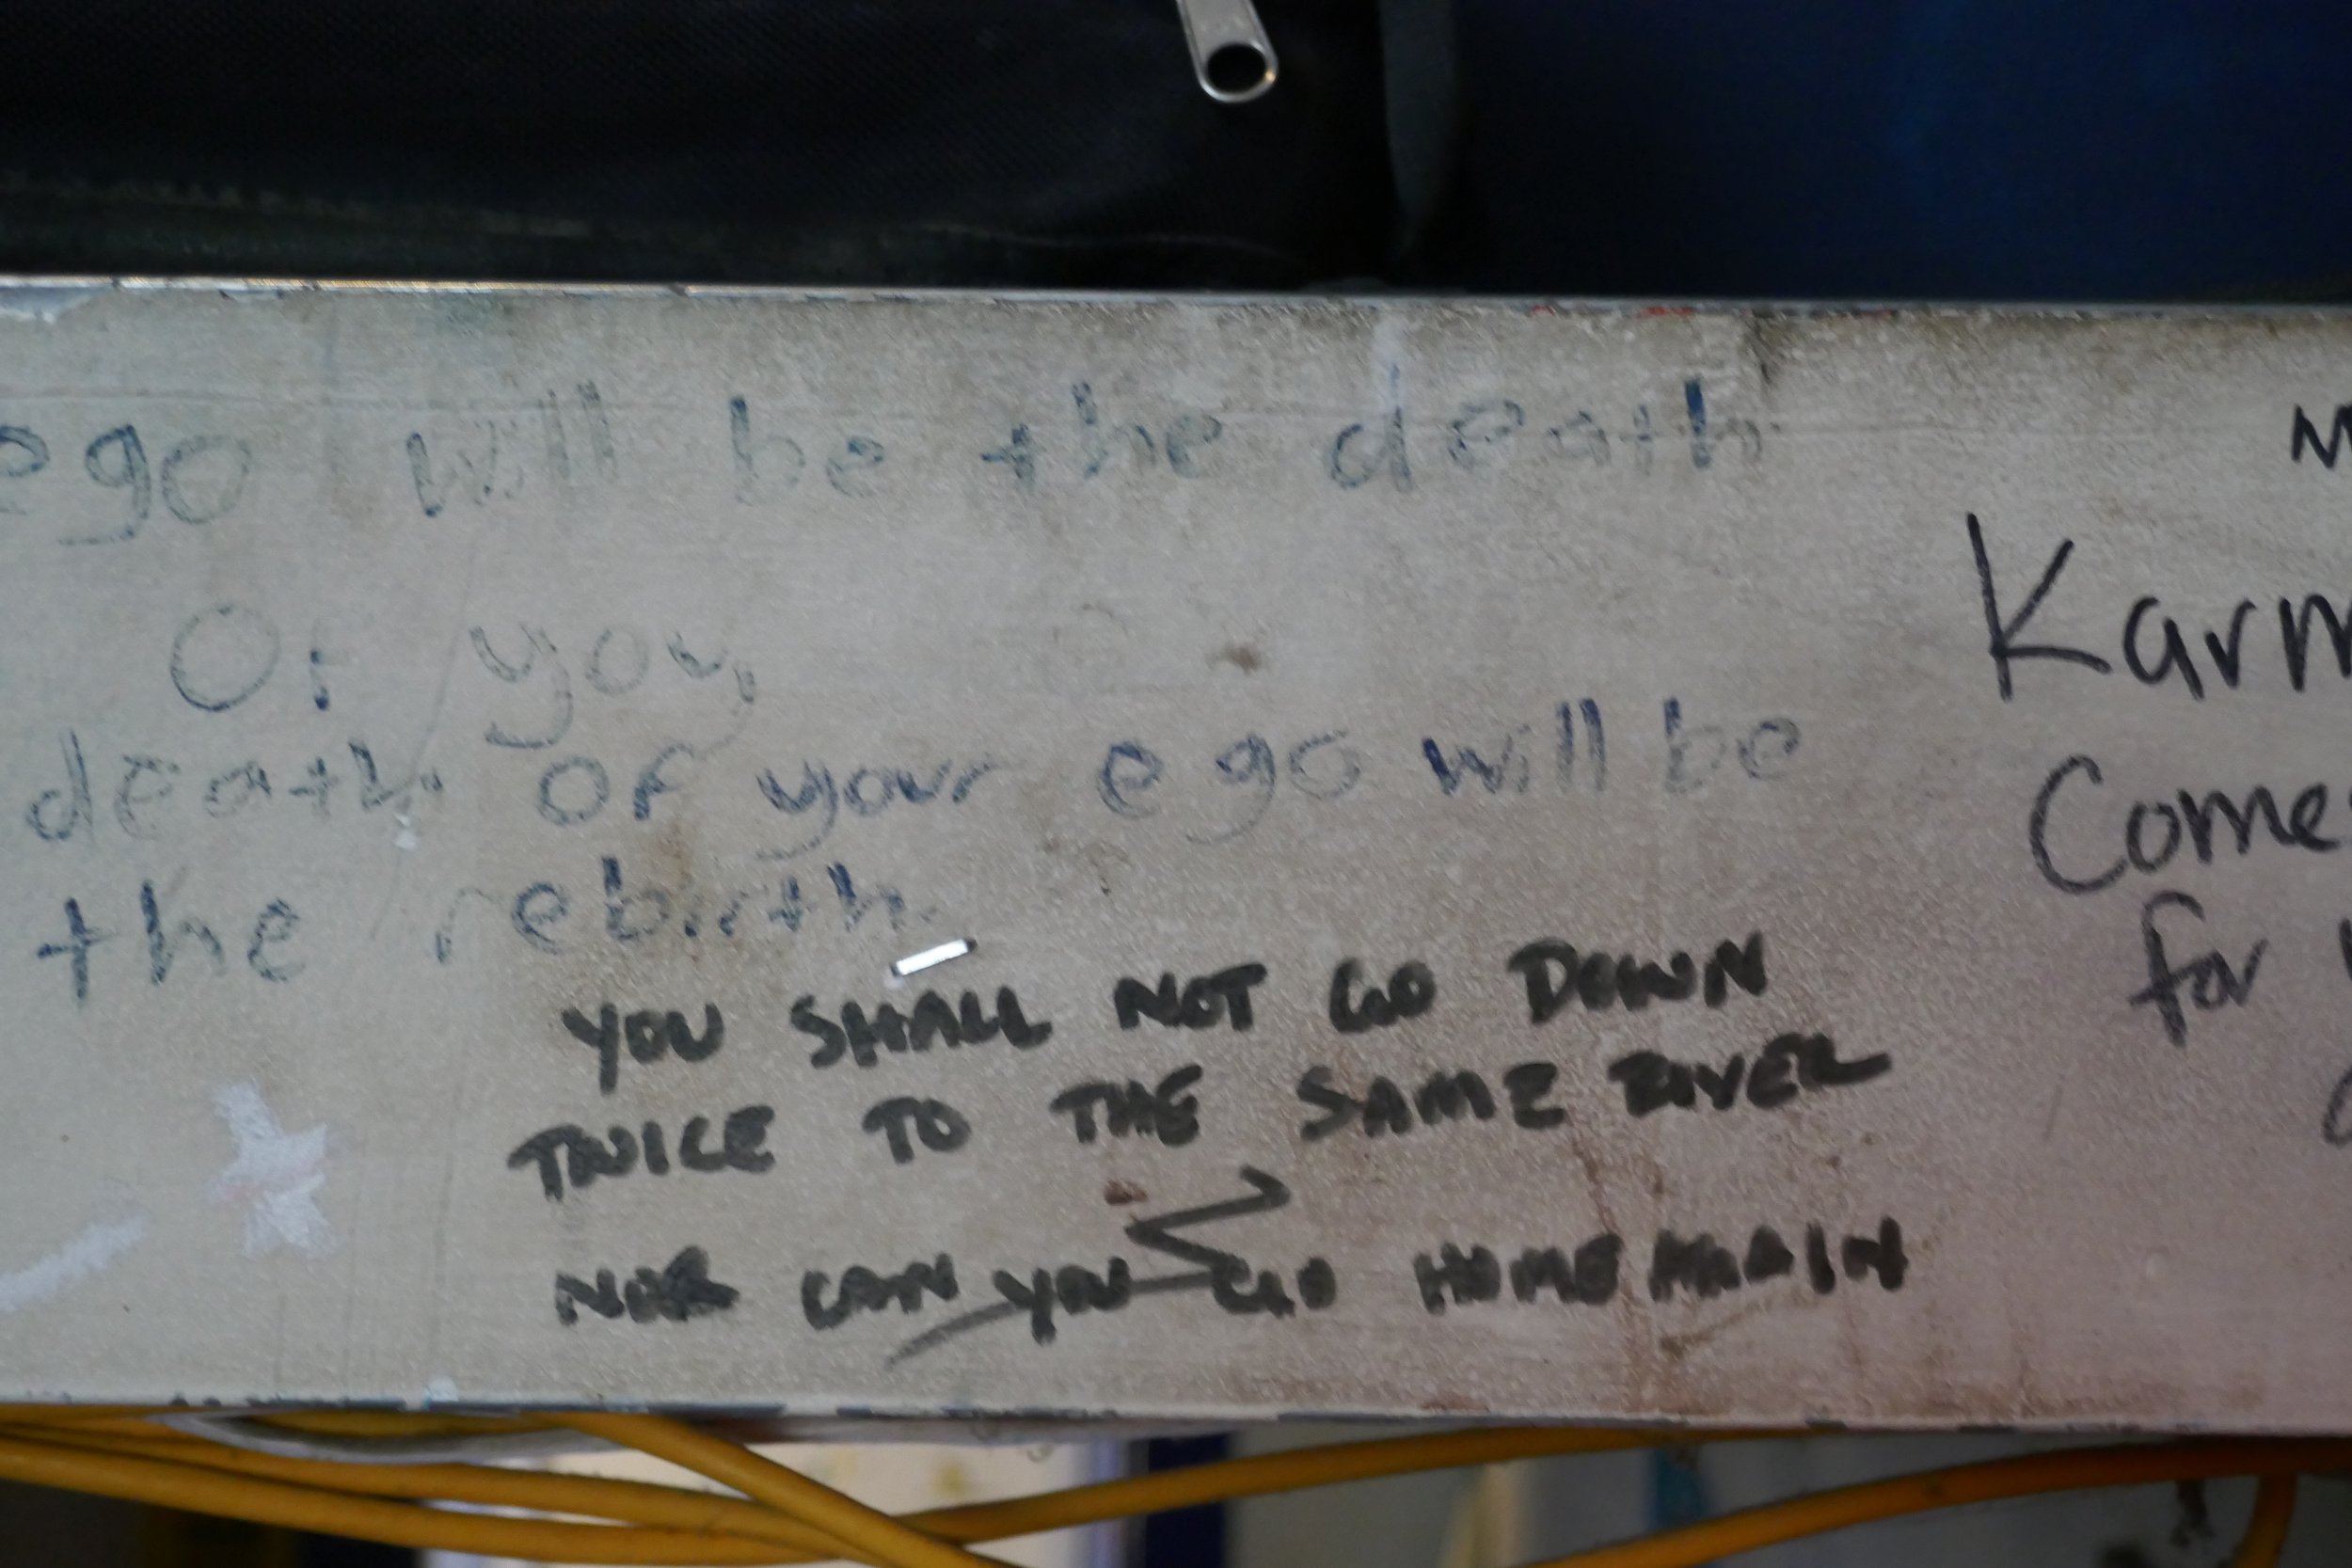 ego will be the death
Of you,
death of your ego will be
the rebirth.
YOU SHALL NOT GO DOWN
TWICE TO THE SAME RIVER
NOR CAN YOU GO HOME AGAIN
Karm
Come
for